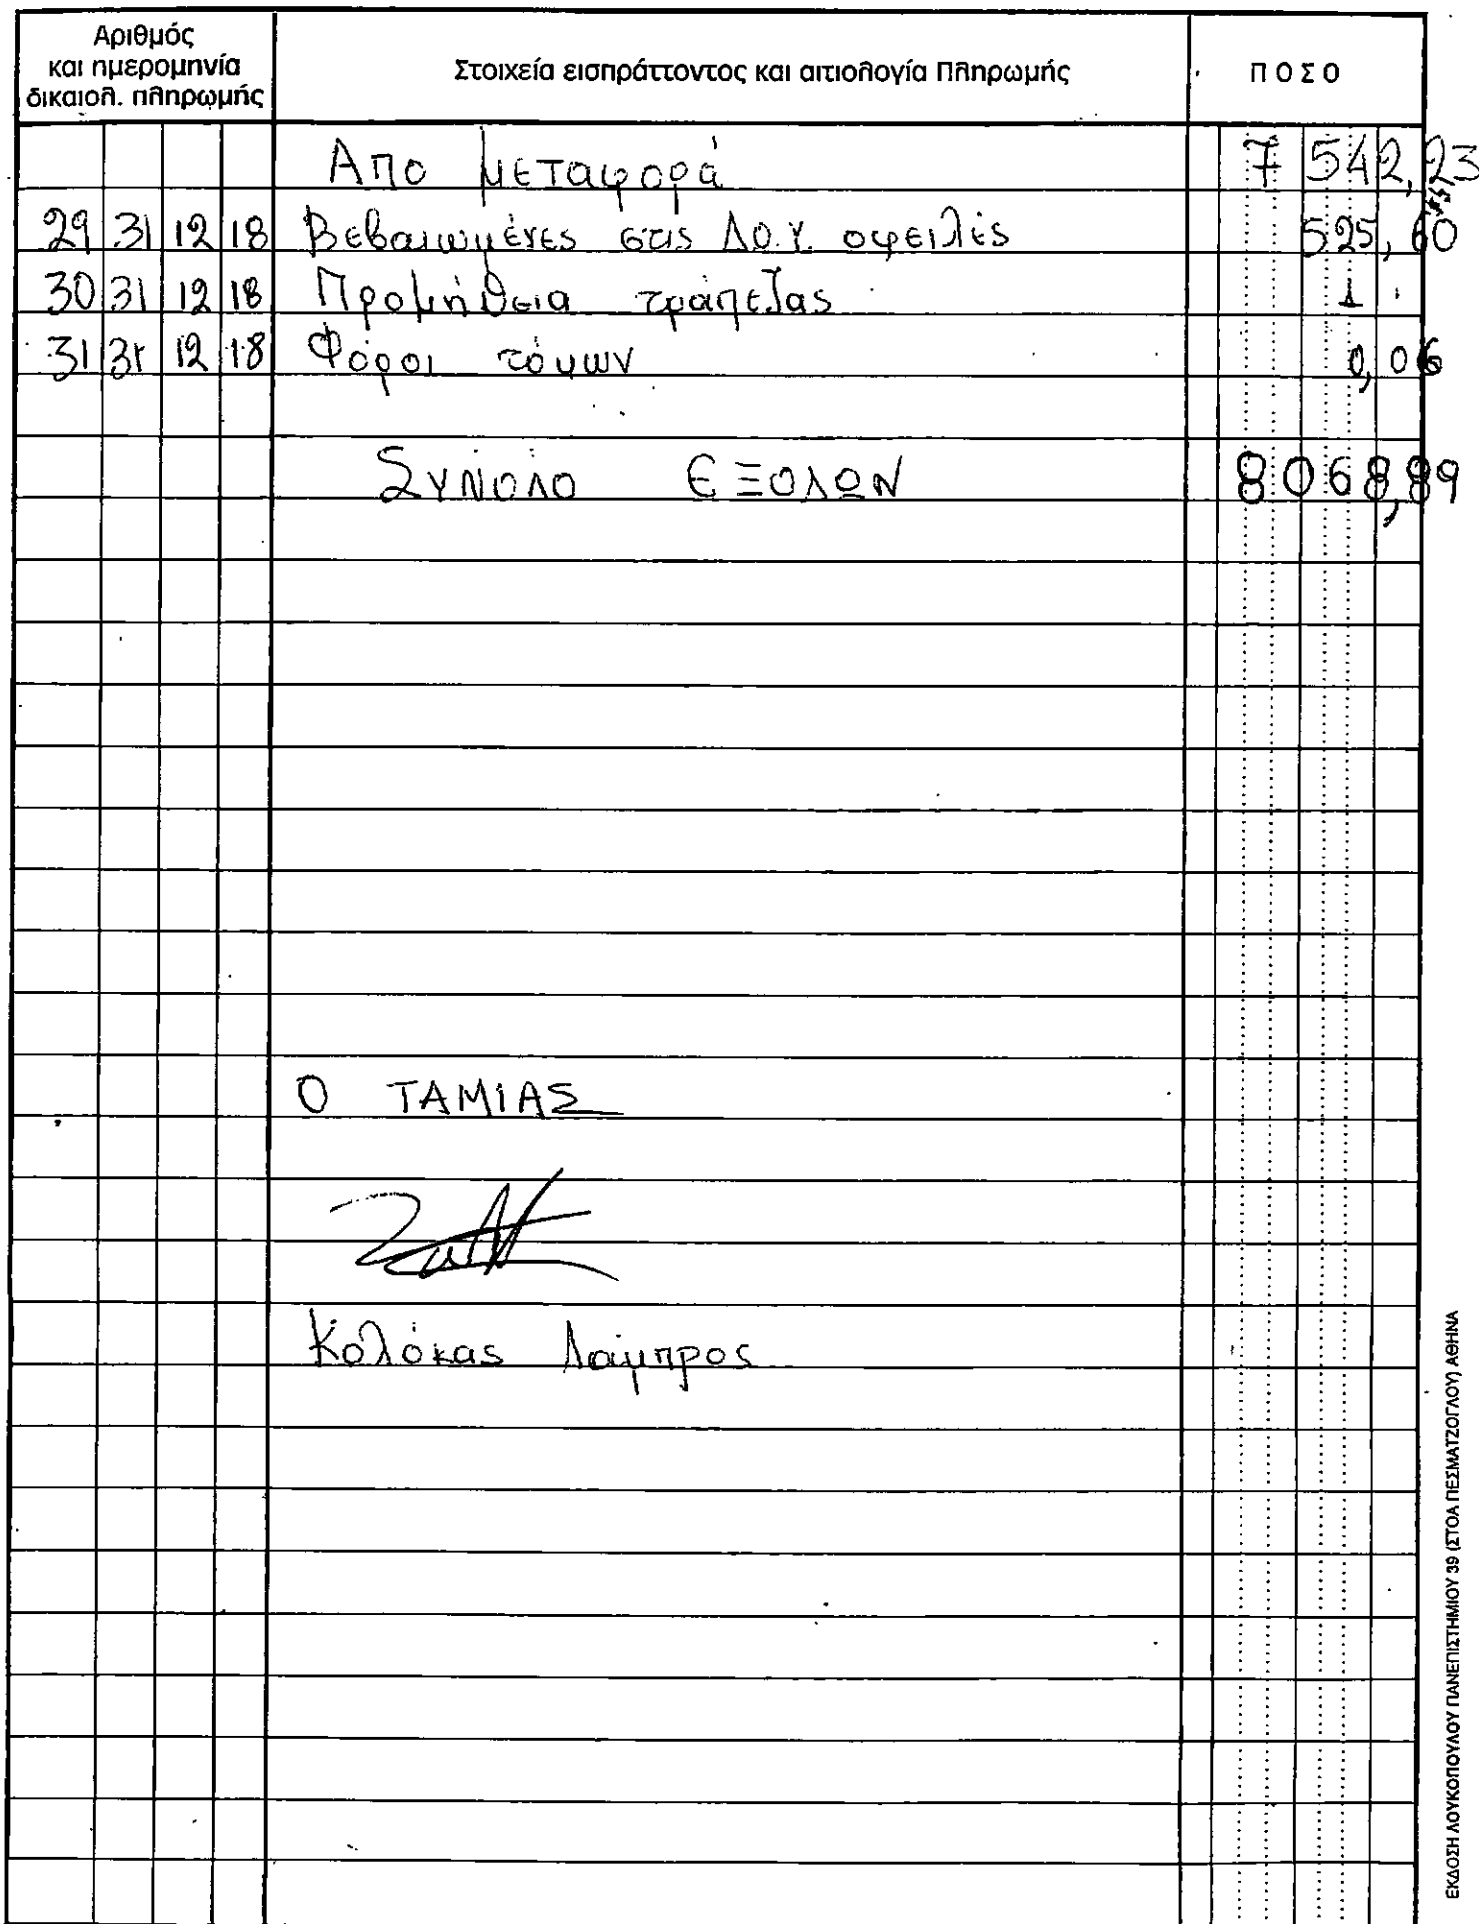 Αριθμός
και ημερομηνία
δικαιολ. πληρωμής
Στοιχεία εισπράττοντος και αιτιολογία Πληρωμής
ΠΟΣΟ
Απο μεταφορά 7 542,23
29 31 12 18 Βεβαιωμένες στις Δ.Ο.Υ. οφειλές 525,60
30 31 12 18 Προμήθεια τράπεζας 1
31 31 12 18 Φόροι τόμων 0,06
ΣΥΝΟΛΟ ΕΞΟΔΩΝ 8 068,89
Ο ΤΑΜΙΑΣ
Κολόκας Λάμπρος
ΕΚΔΟΣΗ ΛΟΥΚΟΠΟΥΛΟΥ ΠΑΝΕΠΙΣΤΗΜΙΟΥ 39 (ΣΤΟΑ ΠΕΣΜΑΤΖΟΓΛΟΥ) ΑΘΗΝΑ